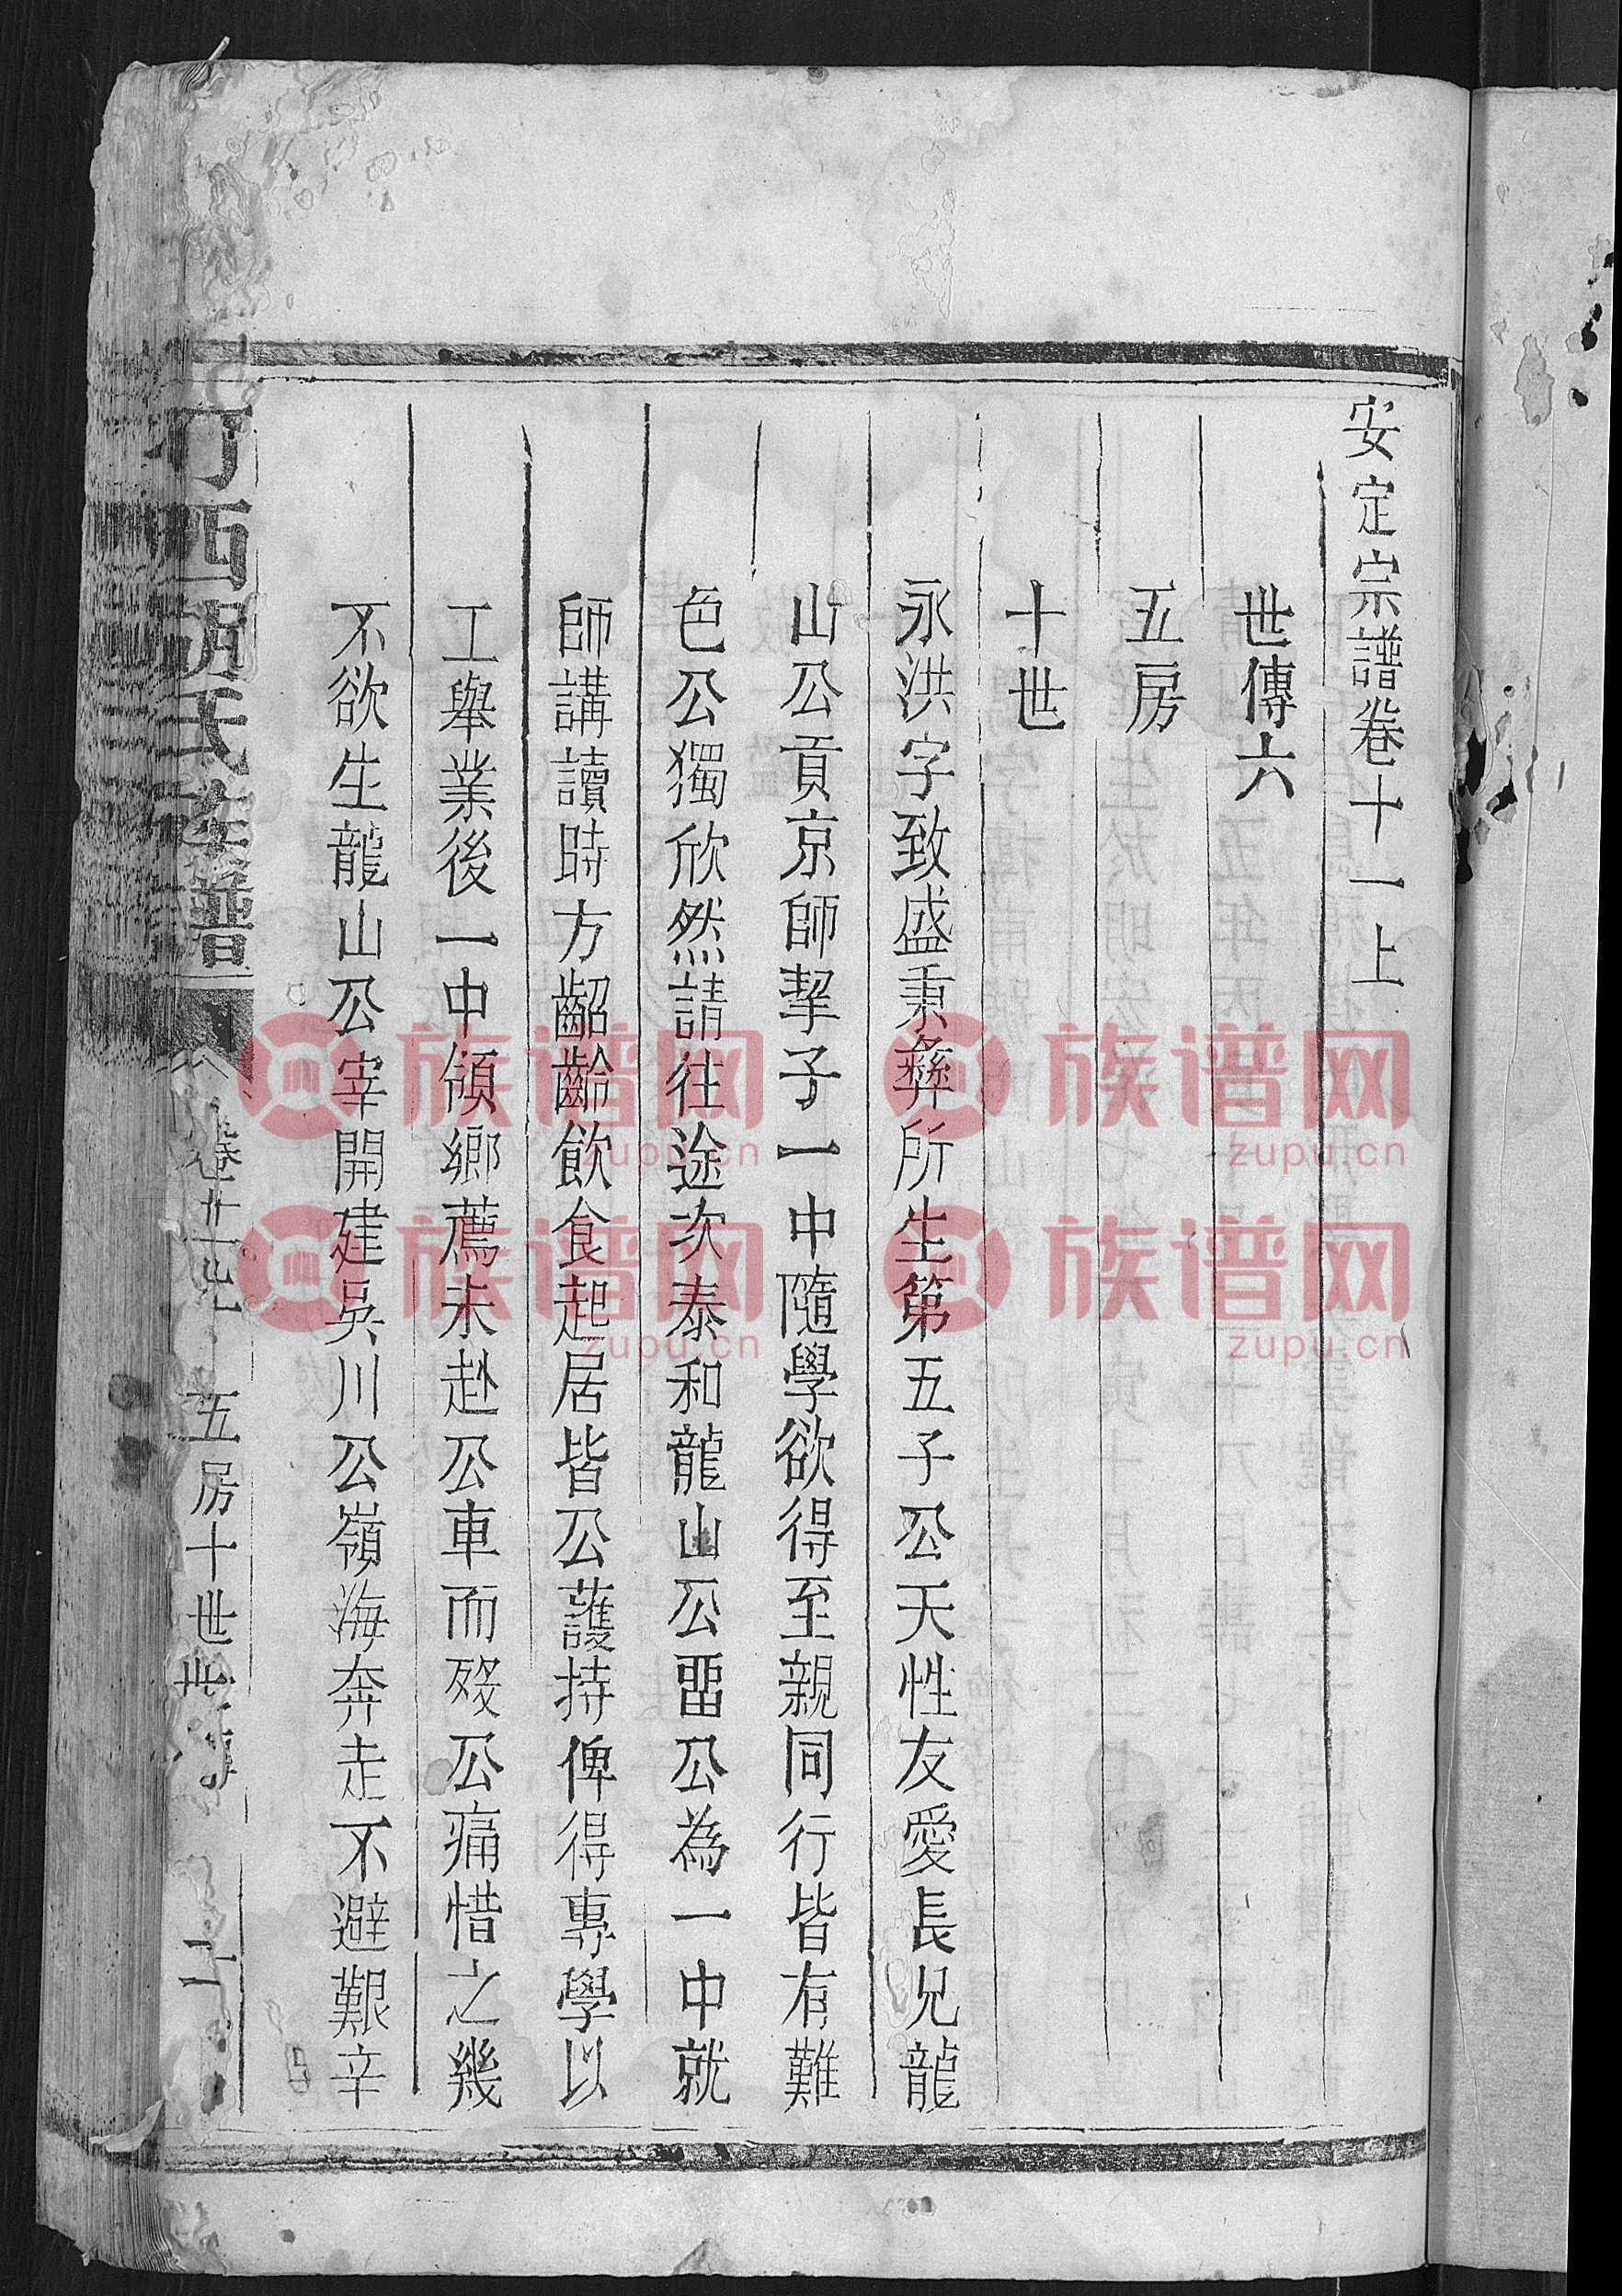 安定宗譜卷十一上
世傳六
五房
十世
永洪字致盛秉彝所生第五子公天性友愛長兄龍
山公貢京師挈子一中隨學欲得至親同行皆有難
色公獨欣然請往途次泰和龍山公畱公為一中就
師講讀時方齠齡飲食起居皆公護持俾得專學以
工舉業後一中領鄉薦未赴公車而歿公痛惜之幾
不欲生龍山公宰開建吳川公嶺海奔走不避艱辛
西胡氏族譜
五房十世世
族谱网
zupu.cn
族谱网
zupu.cn
族谱网
zupu.cn
族谱网
zupu.cn